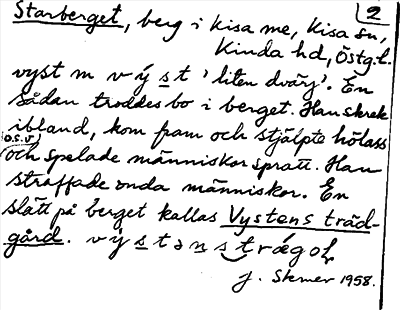 2
Starberget, berg i Kisa sn, Kisa sn,
Kinda hd, Östg.l.
vyst m v ý s t 'liten dvärg'. En
sådan troddes bo i berget. Han skrek
ibland, kom fram och stjälpte hölass
o.s.v.
och spelade människor spratt. Han
straffade onda människor. En
slätt på berget kallas Vystens träd-
gård. v ý s t ə n s t r æ g o ḷ
J. Stemer 1958.